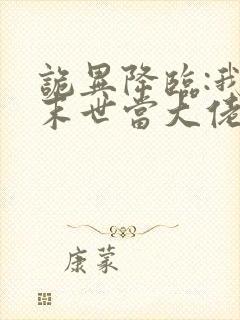 詭異降臨:我
末世當大佬
康蒙